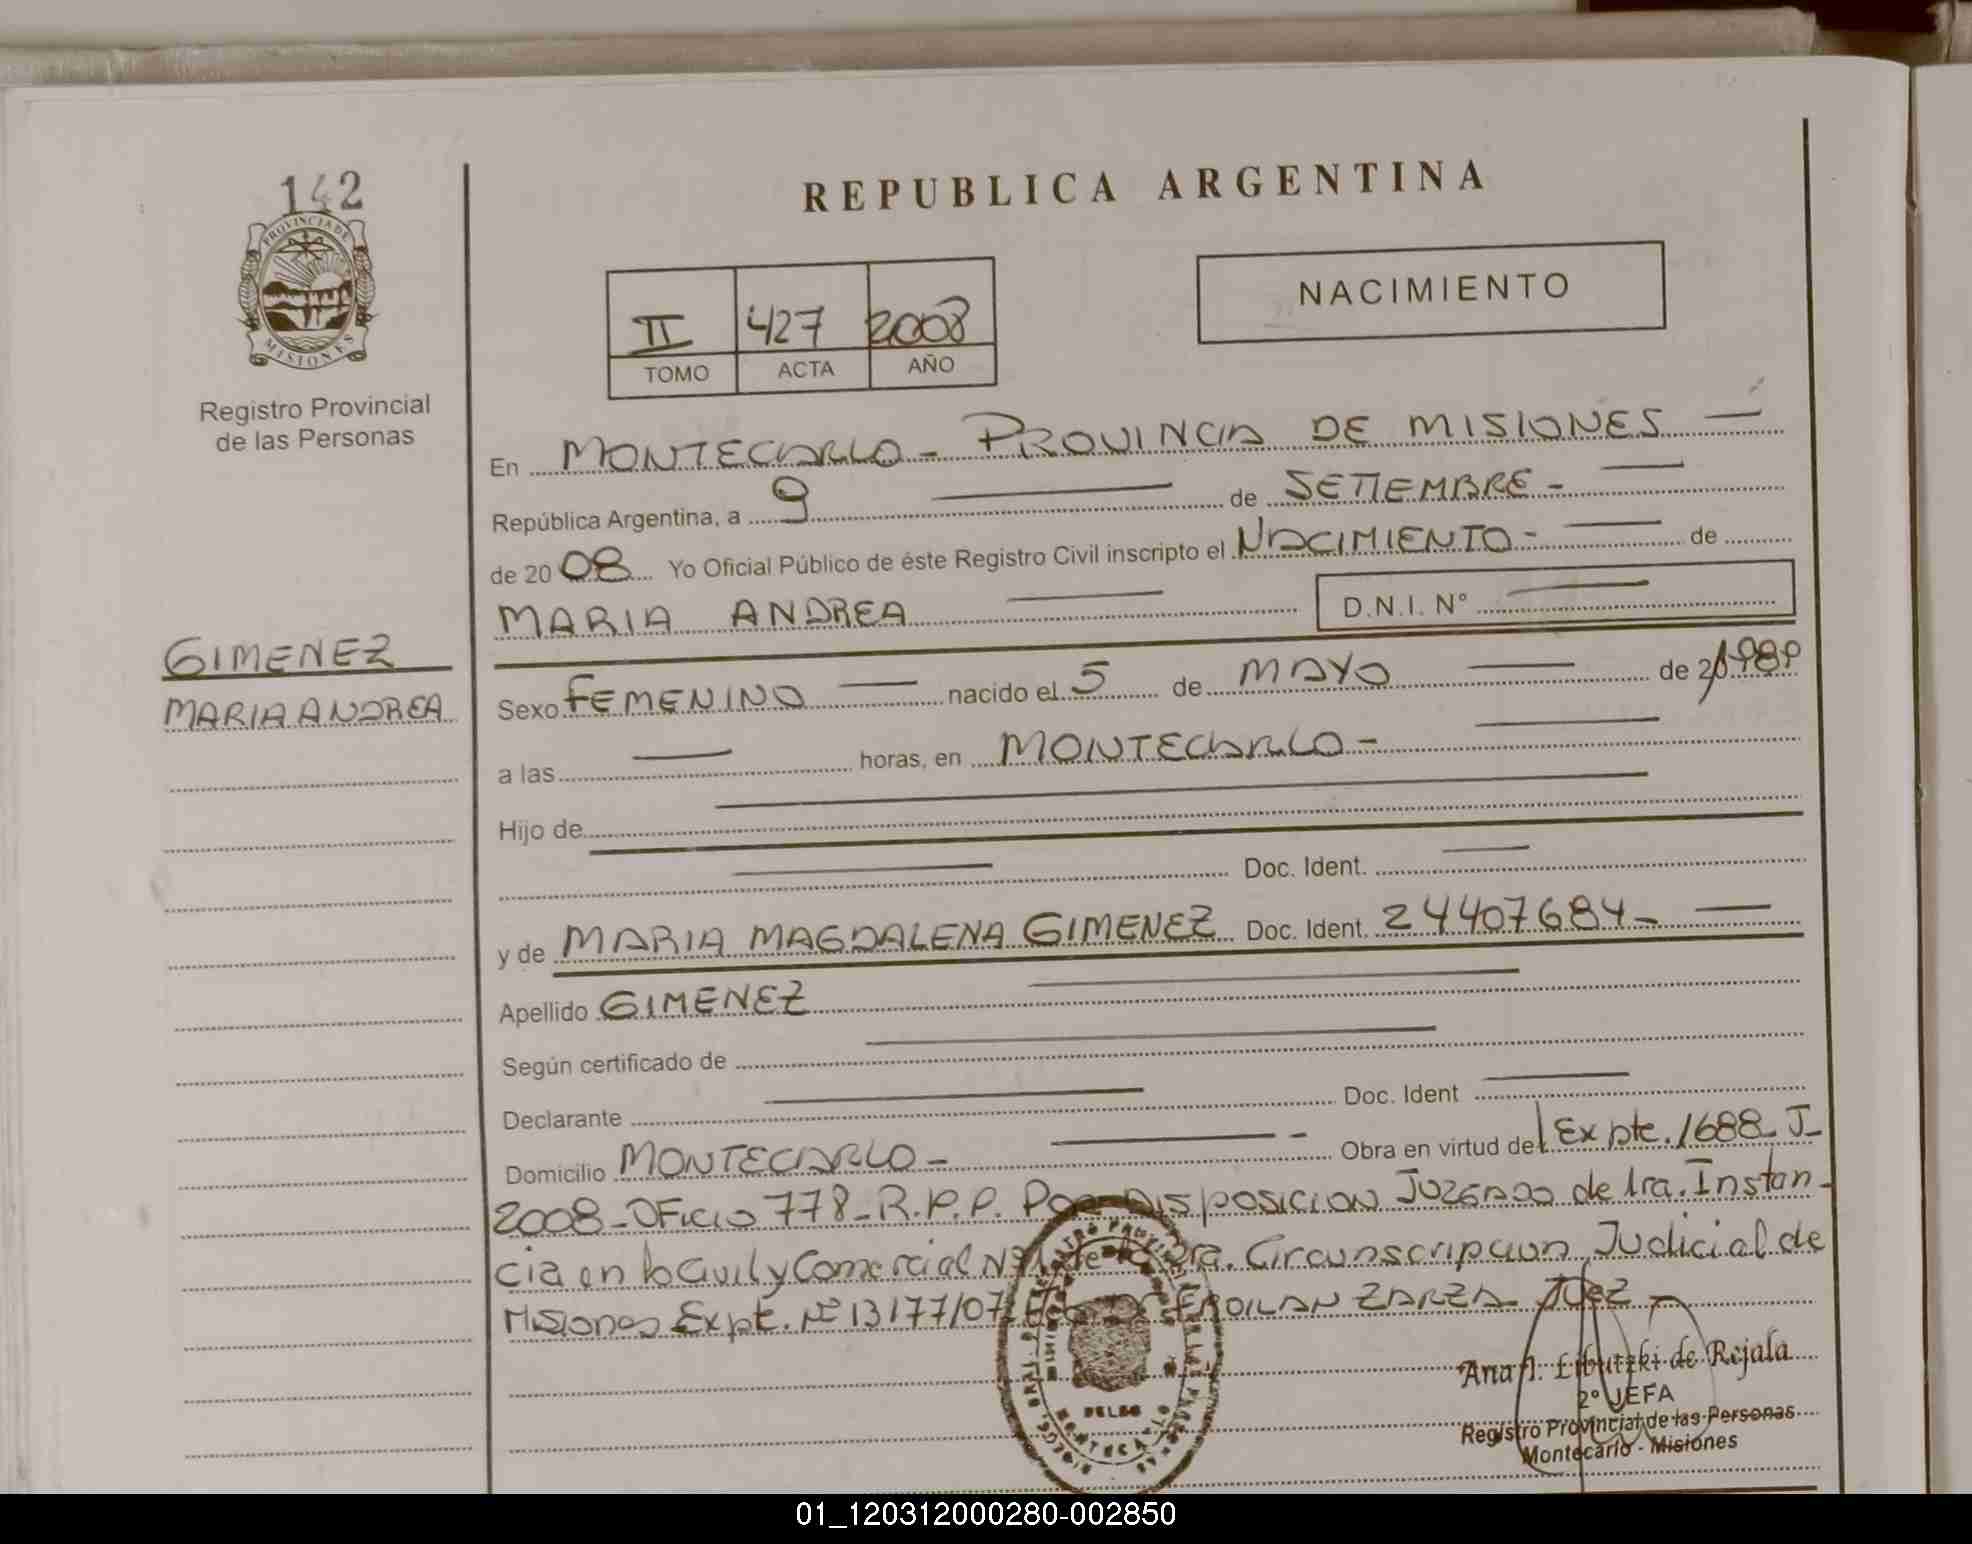 142
REPUBLICA ARGENTINA
PROVINCIA DE
MISIONES
NACIMIENTO
II 427 2008
TOMO ACTA AÑO
Registro Provincial
de las Personas
En MONTECARLO - PROVINCIA DE MISIONES
República Argentina, a 9 de SETIEMBRE -
de 2008 Yo Oficial Público de éste Registro Civil inscripto el NACIMIENTO - de
MARIA ANDREA D.N.I. N°
GIMENEZ
MARIA ANDREA
Sexo FEMENINO nacido el 5 de MAYO de 1989
a las horas, en MONTECARLO -
Hijo de
Doc. Ident.
y de MARIA MAGDALENA GIMENEZ Doc. Ident. 24407684 -
Apellido GIMENEZ
Según certificado de
Declarante Doc. Ident
Domicilio MONTECARLO - Obra en virtud del Expte. 1688 - J -
2008 - OFICIO 778 - R.P.P. Por DISPOSICION JUZGADO de 1ra. Instan -
cia en lo Civil y Comercial Nº 1 de Circunscripcion Judicial de
Misiones Expt. Nº 13177/07 FROILAN ZARZA - JUEZ -
Ana I. Libutzki de Rejala
2° JEFA
Registro Provincial de las Personas
Montecarlo - Misiones
01_120312000280-002850